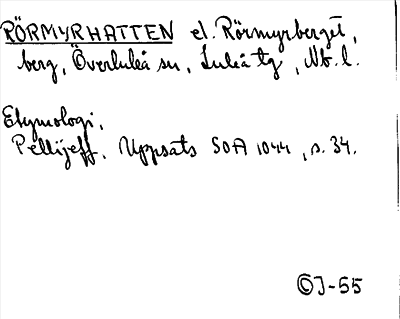 RÖRMYRHATTEN el. Rörmyrberget,
berg, Överluleå sn, Luleå tg, Nb. l.
Etymologi,
Pellijeff, Uppsats SOA 1044, s. 34.
©J-55